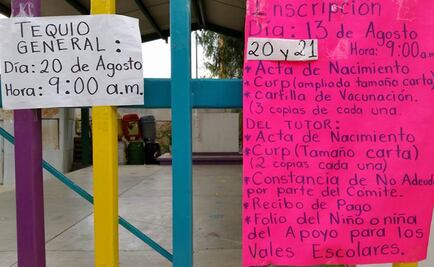 TEQUIO
GENERAL:
Día: 20 de Agosto
Hora: 9:00 a.m.
Inscripción
Día: 13 de Agosto
20 y 21 Hora: 9:00a.m
* Acta de Nacimiento
* Curp (ampliado tamaño carta)
* cartilla de Vacunación.
(3 copias de cada una.
DEL TUTOR:
* Acta de Nacimiento
* Curp (Tamaño carta)
(2 copias cada una)
* Constancia de No Adeudo
por parte del Comite.
* Recibo de Pago
* Folio del Niño o niña
del Apoyo para los
Vales Escolares.